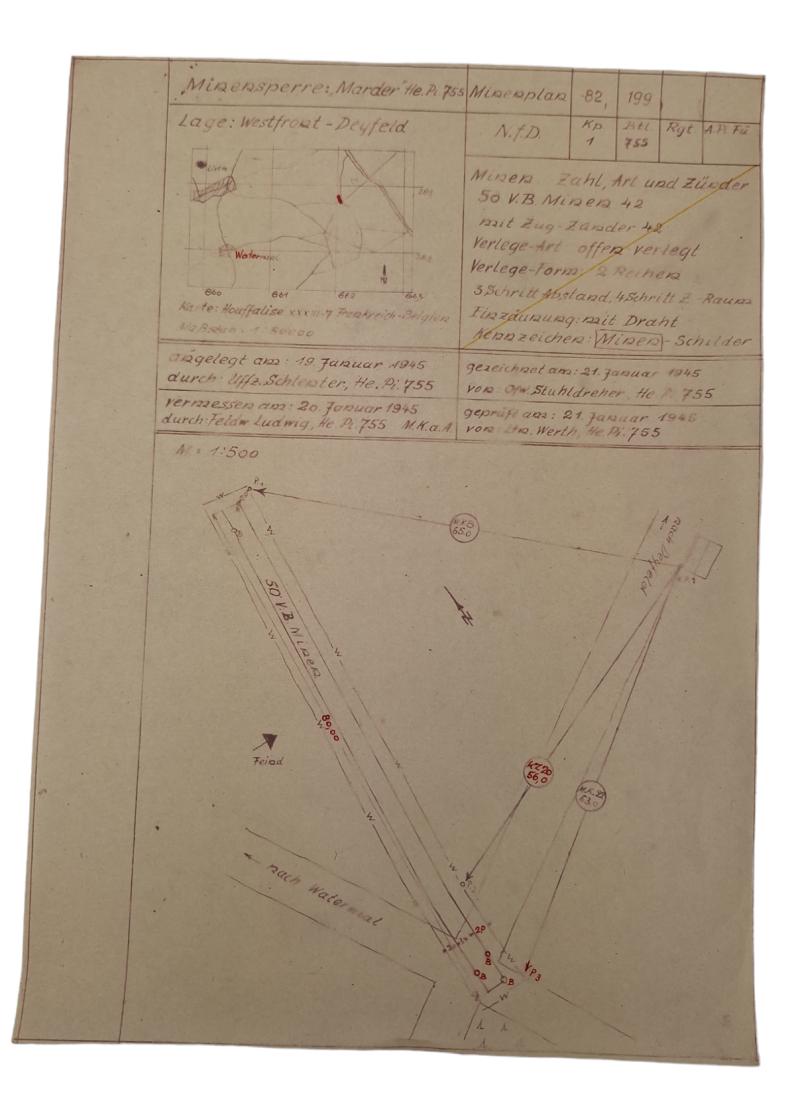 Minensperre: „Marder" He. Pi 755
Minenplan
82,
199
Lage: Westfront - Deyfeld
N.f.D.
Kp
1
Btl
755
Rgt
A.Pi.Fü
Watermal
660
661
662
663
N
Karte: Houffalise XXXIII-7 Frankreich-Belgien
Maßstab: 1:50000
Minen Zahl, Art und Zünder
50 V.B. Minen 42
mit Zug-Zünder 42
Verlege-Art offen verlegt
Verlege-Form: 2 Reihen
3 Schritt Abstand, 4 Schritt Z-Raum
Einzäunung: mit Draht
Kennzeichen: Minen-Schilder
angelegt am: 19. Januar 1945
durch: Uffz. Schlenter, He. Pi. 755
gezeichnet am: 21. Januar 1945
von: Ofw. Stuhldreher, He. Pi. 755
vermessen am: 20. Januar 1945
durch: Feldw Ludwig, He. Pi. 755 M.K.a.A.
geprüft am: 21. Januar 1945
von: Ltn. Werth, He. Pi. 755
M = 1:500
W
65,0
nach Deyfeld
W
50 V.B Minen
W
W
N
80,00
W
Feind
W
KZ 20
56,0
53,0
W
W
nach Watermal
20
B
B
B
W
P3
W